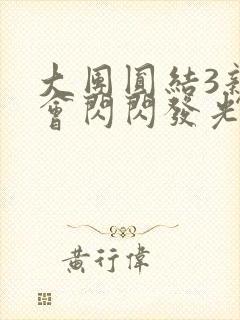 大團圓結3
會閃閃發光
黃行偉